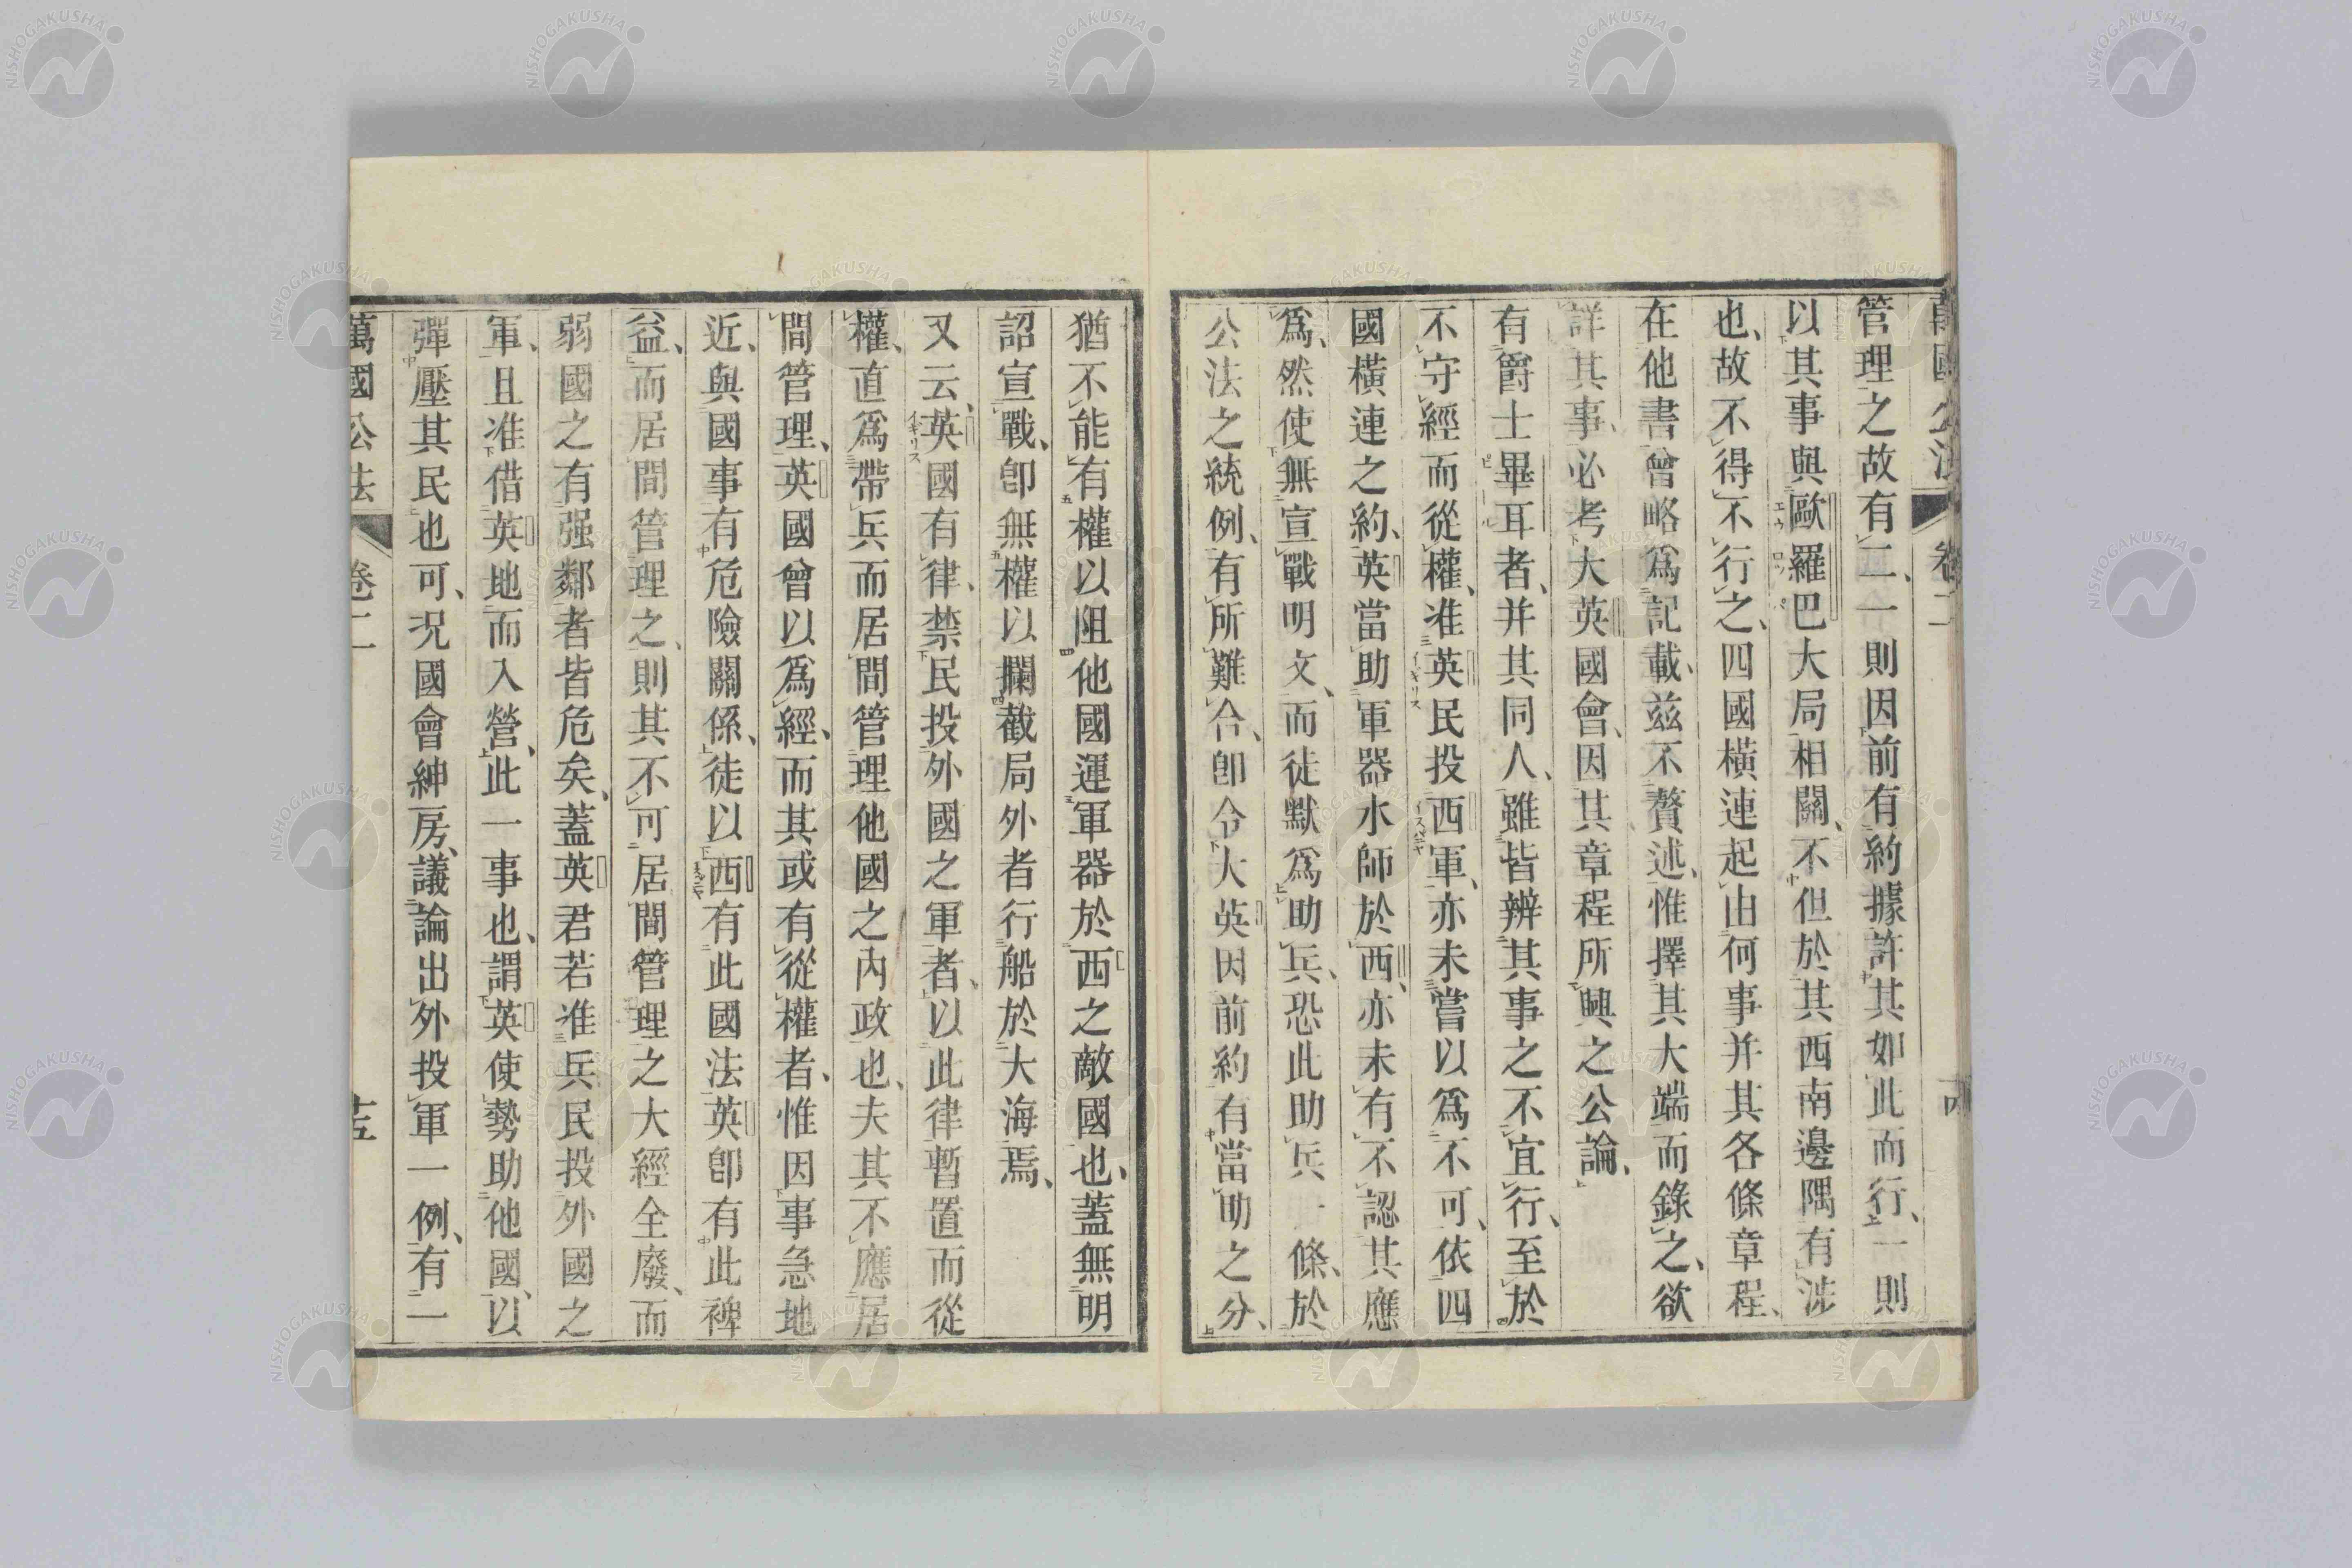 萬國公法 卷二
管理之故有二、一則因前有約據許其如此而行、一則
以其事與歐羅巴大局相關、不但於其西南邊隅有涉
也、故不得不行之、四國橫連起由何事并其各條章程、
在他書曾略爲記載、兹不贅述、惟擇其大端而錄之、欲
詳其事、必考大英國會、因其章程所興之公論、
有爵士畢耳者、并其同人、雖皆辨其事之不宜行、至於
不守經而從權、准英民投西軍、亦未嘗以爲不可、依四
國橫連之約、英當助軍器水師於西、亦未有不認其應
爲、然使無宣戰明文、而徒默爲助兵、恐此助兵一條、於
公法之統例、有所難合、卽令大英因前約有當助之分、
猶不能有權以阻他國運軍器於西之敵國也、蓋無明
詔宣戰、卽無權以攔截局外者行船於大海焉、
又云、英國有律、禁民投外國之軍者、以此律暫置而從
權、直爲帶兵而居間管理他國之內政也、夫其不應居
間管理、英國曾以爲經、而其或有從權者、惟因事急地
近、與國事有危險關係、徒以西有此國法英卽有此裨
益、而居間管理之、則其不可居間管理之大經全廢、而
弱國之有强鄰者皆危矣、蓋英君若准兵民投外國之
軍、且准借英地而入營、此一事也、謂英使勢助他國、以
彈壓其民也可、况國會紳房、議論出外投軍一例、有一
萬國公法 卷二 十五